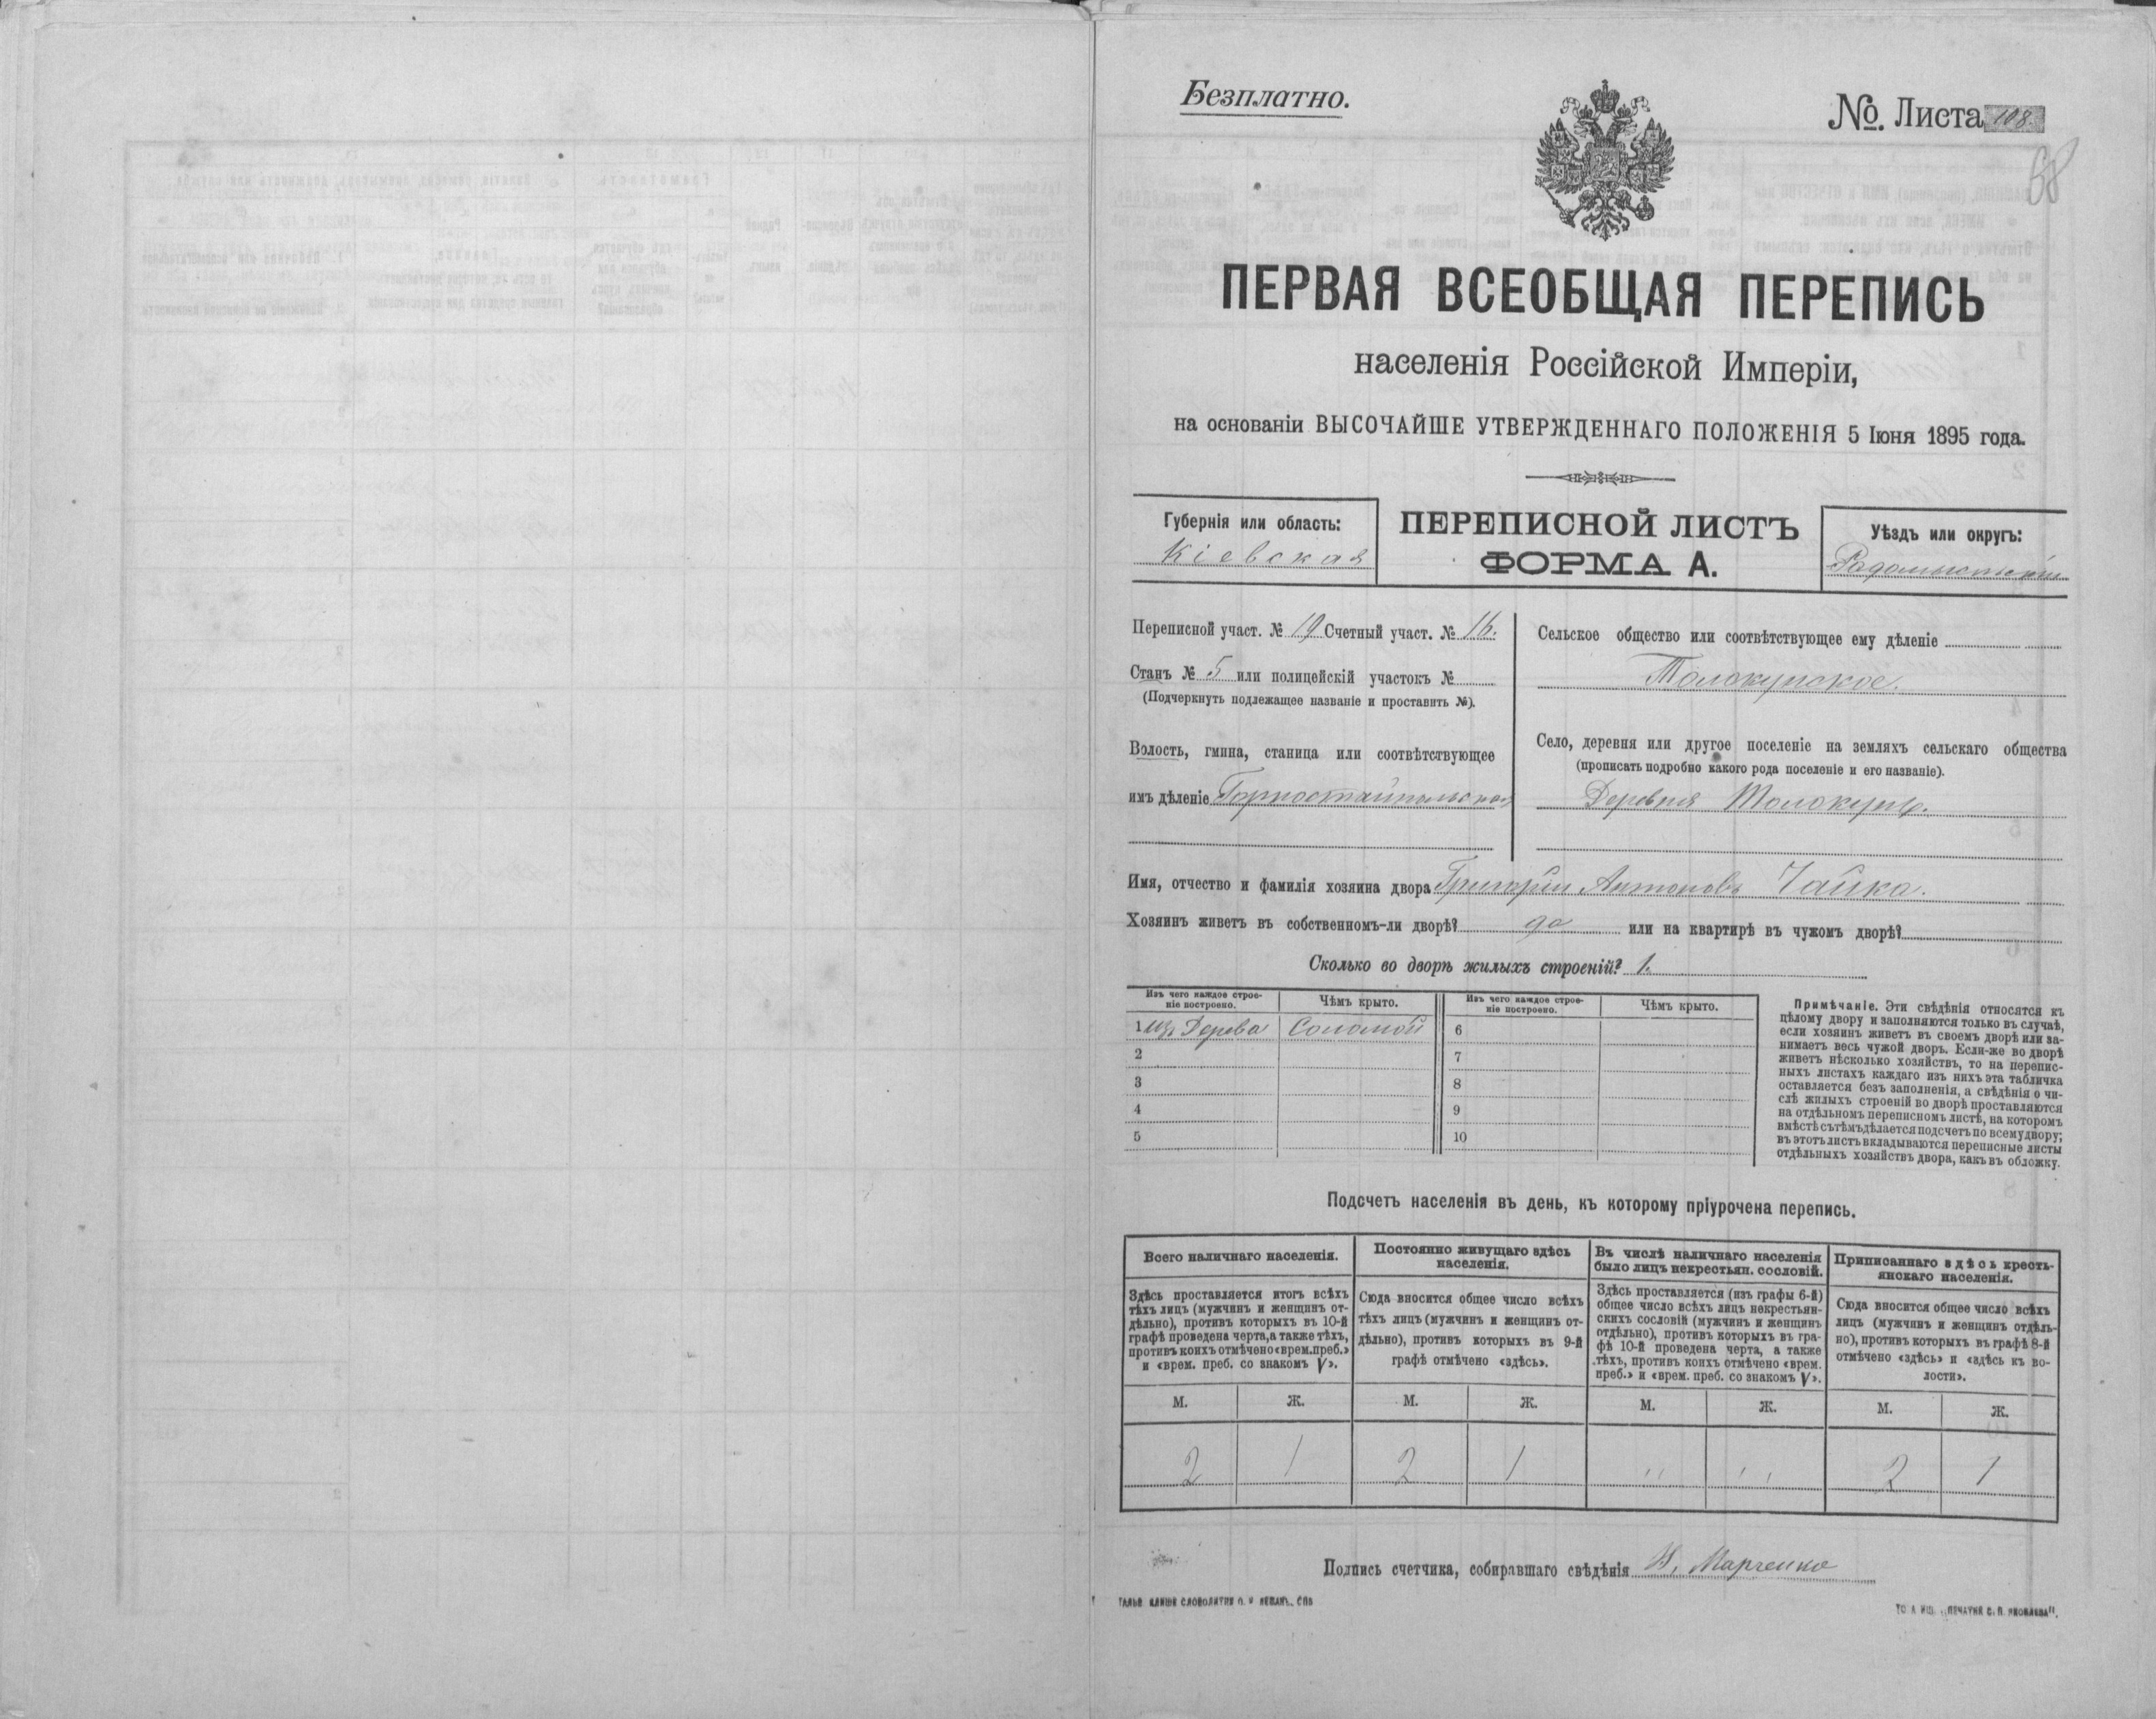 Безплатно.
№. Листа 108.
68
ПЕРВАЯ ВСЕОБЩАЯ ПЕРЕПИСЬ
населенія Россійской Имперіи,
на основаніи ВЫСОЧАЙШЕ УТВЕРЖДЕННАГО ПОЛОЖЕНІЯ 5 Іюня 1895 года.
Губернія или область:
Кіевская
ПЕРЕПИСНОЙ ЛИСТЪ
ФОРМА А.
Уѣздъ или округъ:
Радомысльскій
Переписной участ. № 19 Счетный участ. № 16.
Станъ № 5 или полицейскій участокъ №
(Подчеркнуть подлежащее названіе и проставить №).
Волость, гмина, станица или соотвѣтствующее
имъ дѣленіе Горностайпольская
Сельское общество или соотвѣтствующее ему дѣленіе
Толокунское.
Село, деревня или другое поселеніе на земляхъ сельскаго общества
(прописать подробно какого рода поселеніе и его названіе).
Деревня Толокунь.
Имя, отчество и фамилія хозяина двора Григорій Антоновъ Чайка.
Хозяинъ живетъ въ собственномъ-ли дворѣ? да или на квартирѣ въ чужомъ дворѣ?
Сколько во дворѣ жилыхъ строеній? 1.
Изъ чего каждое строе-
ніе построено.
Чѣмъ крыто.
Изъ чего каждое строе-
ніе построено.
Чѣмъ крыто.
1 изъ Дерева Соломой 6
2 7
3 8
4 9
5 10
Примѣчаніе. Эти свѣдѣнія относятся къ
цѣлому двору и заполняются только въ случаѣ,
если хозяинъ живетъ въ своемъ дворѣ или за-
нимаетъ весь чужой дворъ. Если-же во дворѣ
живетъ нѣсколько хозяйствъ, то на перепис-
ныхъ листахъ каждаго изъ нихъ эта табличка
оставляется безъ заполненія, а свѣдѣнія о чи-
слѣ жилыхъ строеній во дворѣ проставляются
на отдѣльномъ переписномъ листѣ, на которомъ
вмѣстѣ съ тѣмъ дѣлается подсчетъ по всему двору;
въ этотъ листъ вкладываются переписные листы
отдѣльныхъ хозяйствъ двора, какъ въ обложку.
Подсчетъ населенія въ день, къ которому пріурочена перепись.
Всего наличнаго населенія.
Здѣсь проставляется итогъ всѣхъ
тѣхъ лицъ (мужчинъ и женщинъ от-
дѣльно), противъ которыхъ въ 10-й
графѣ проведена черта, а также тѣхъ,
противъ коихъ отмѣчено «врем. преб.»
и «врем. преб. со знакомъ V».
Постоянно живущаго здѣсь
населенія.
Сюда вносится общее число всѣхъ
тѣхъ лицъ (мужчинъ и женщинъ от-
дѣльно), противъ которыхъ въ 9-й
графѣ отмѣчено «здѣсь».
Въ числѣ наличнаго населенія
было лицъ некрестьян. сословій.
Здѣсь проставляется (изъ графы 6-й)
общее число всѣхъ лицъ некрестьян-
скихъ сословій (мужчинъ и женщинъ
отдѣльно), противъ которыхъ въ гра-
фѣ 10-й проведена черта, а также
тѣхъ, противъ коихъ отмѣчено «врем.
преб.» и «врем. преб. со знакомъ V».
Приписаннаго здѣсь кресть-
янскаго населенія.
Сюда вносится общее число всѣхъ
лицъ (мужчинъ и женщинъ отдѣль-
но), противъ которыхъ въ графѣ 8-й
отмѣчено «здѣсь» и «здѣсь къ во-
лости».
М. Ж. М. Ж. М. Ж. М. Ж.
2 1 2 1 " " 2 1
Подпись счетчика, собиравшаго свѣдѣнія Н. Марченко